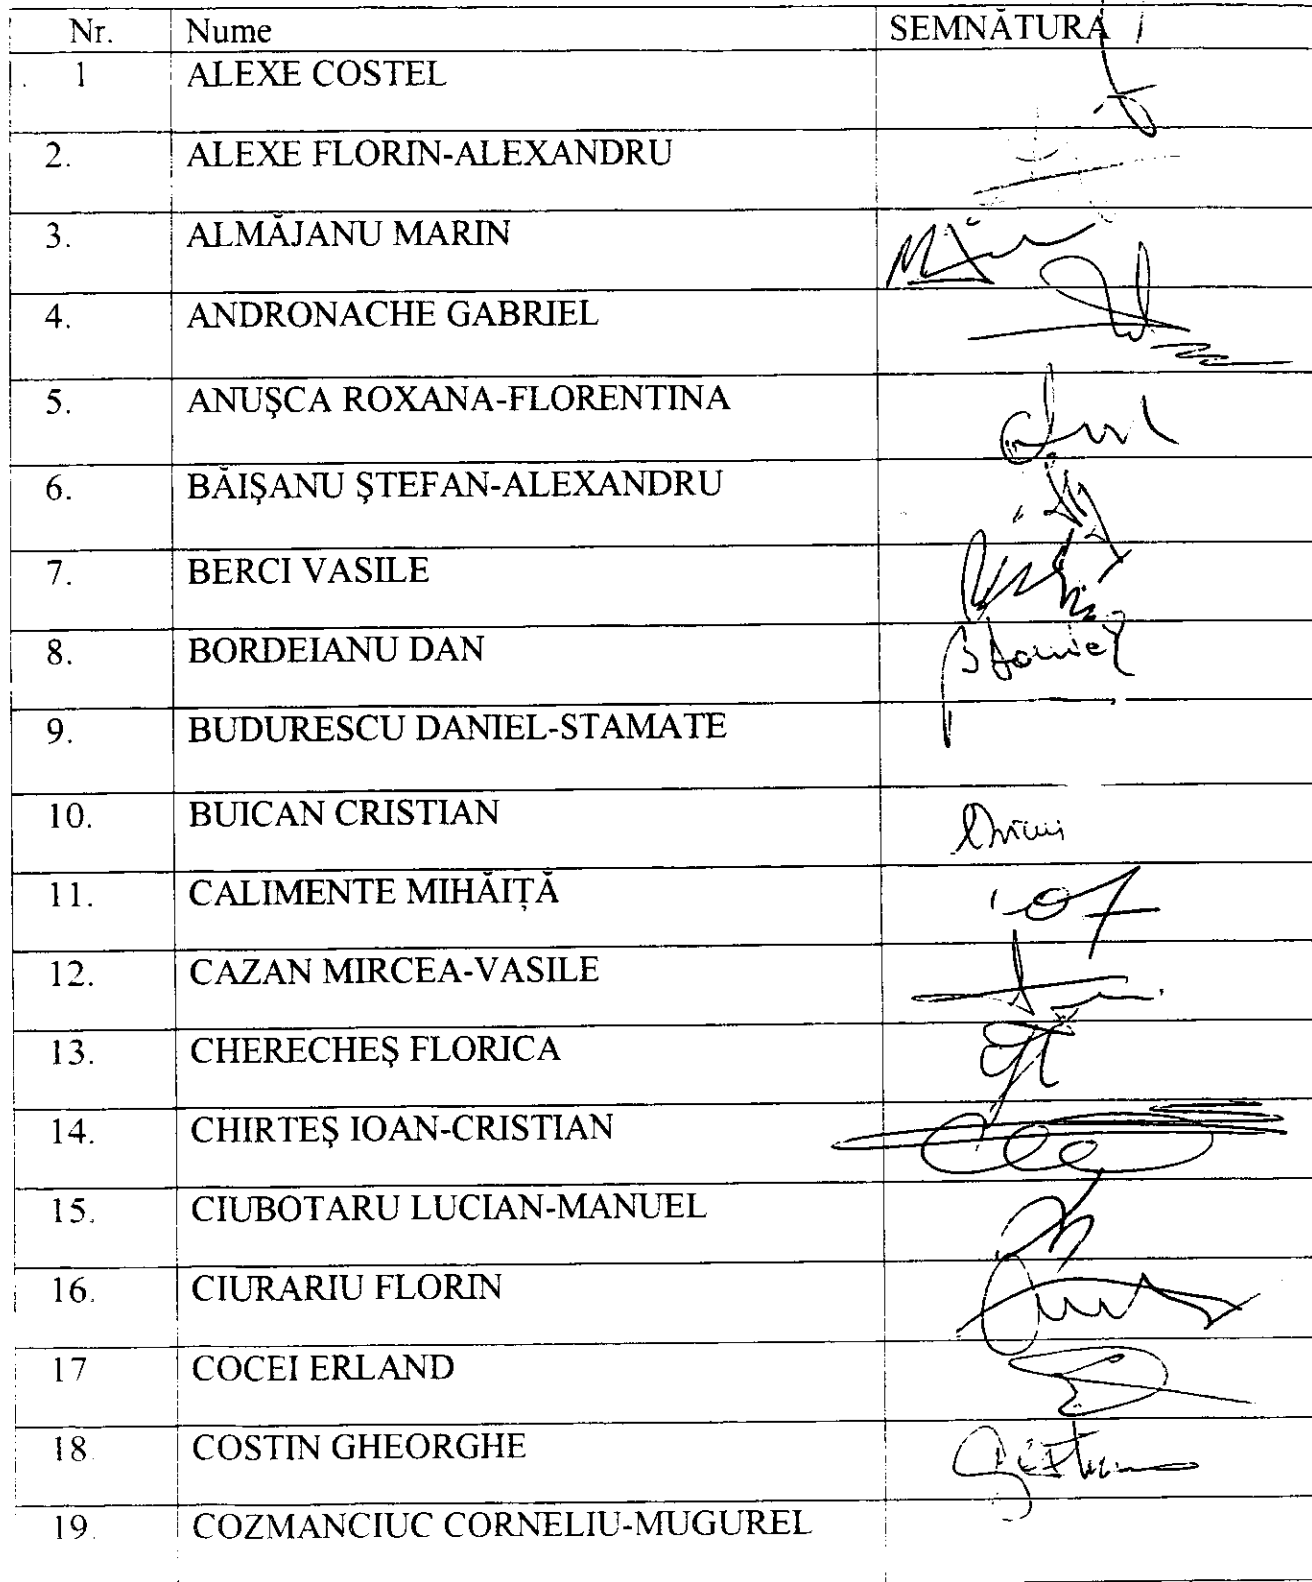 Nr. Nume SEMNĂTURA
1 ALEXE COSTEL
2. ALEXE FLORIN-ALEXANDRU
3. ALMĂJANU MARIN
4. ANDRONACHE GABRIEL
5. ANUŞCA ROXANA-FLORENTINA
6. BĂIŞANU ŞTEFAN-ALEXANDRU
7. BERCI VASILE
8. BORDEIANU DAN
9. BUDURESCU DANIEL-STAMATE
10. BUICAN CRISTIAN
11. CALIMENTE MIHĂIŢĂ
12. CAZAN MIRCEA-VASILE
13. CHERECHEŞ FLORICA
14. CHIRTEŞ IOAN-CRISTIAN
15. CIUBOTARU LUCIAN-MANUEL
16. CIURARIU FLORIN
17 COCEI ERLAND
18. COSTIN GHEORGHE
19. COZMANCIUC CORNELIU-MUGUREL